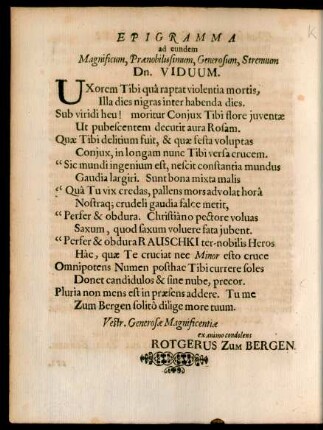 EPIGRAMMA
ad eundem
Magnificum, Prænobilissimum, Generosum, Strenuum
Dn. VIDUUM.
UXorem Tibi quà raptat violentia mortis,
Illa dies nigras inter habenda dies.
Sub viridi heu! moritur Conjux Tibi flore juventæ
Ut pubescentem decutit aura Rosam.
Quæ Tibi delitium fuit, & quæ festa voluptas
Conjux, in longam nunc Tibi versa crucem.
“ Sic mundi ingenium est, nescit constantia mundus
Gaudia largiri. Sunt bona mixta malis
“ Quà Tu vix credas, pallens mors advolat horâ
Nostraq; crudeli gaudia falce metit,
“ Perfer & obdura. Christiàno pectore voluas
Saxum, quod saxum voluere fata jubent.
“ Perfer & obdura RAUSCHKI ter-nobilis Heros
Hàc, quæ Te cruciat nec Minor esto cruce
Omnipotens Numen posthac Tibi currere soles
Donet candidulos & sine nube, precor.
Pluria non mens est in præsens addere. Tu me
Zum Bergen solitò dilige more tuum.
Vestr. Generosæ Magnificentiæ
ex animo condolens
ROTGERUS ZUM BERGEN.